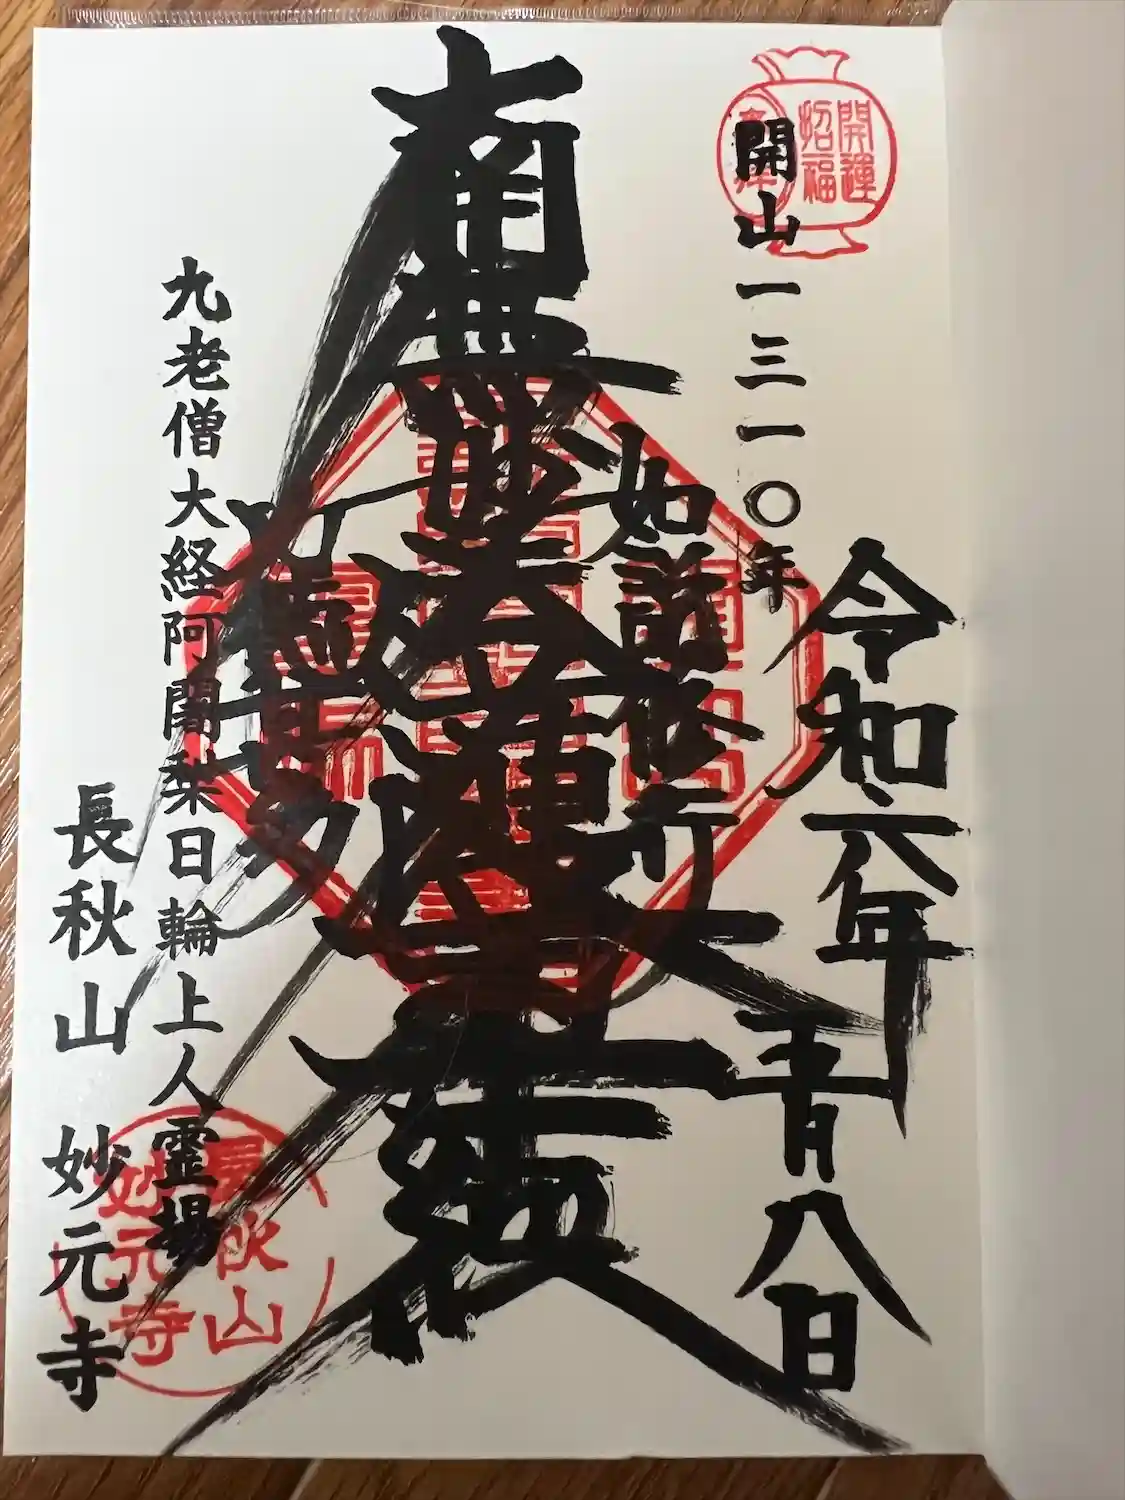 開運
招福
開山一三一〇年
令和六年
五月八日
如説修行
南無妙法蓮華経
九老僧大経阿闍梨日輪上人霊場
長秋山 妙元寺
長秋山
妙元寺